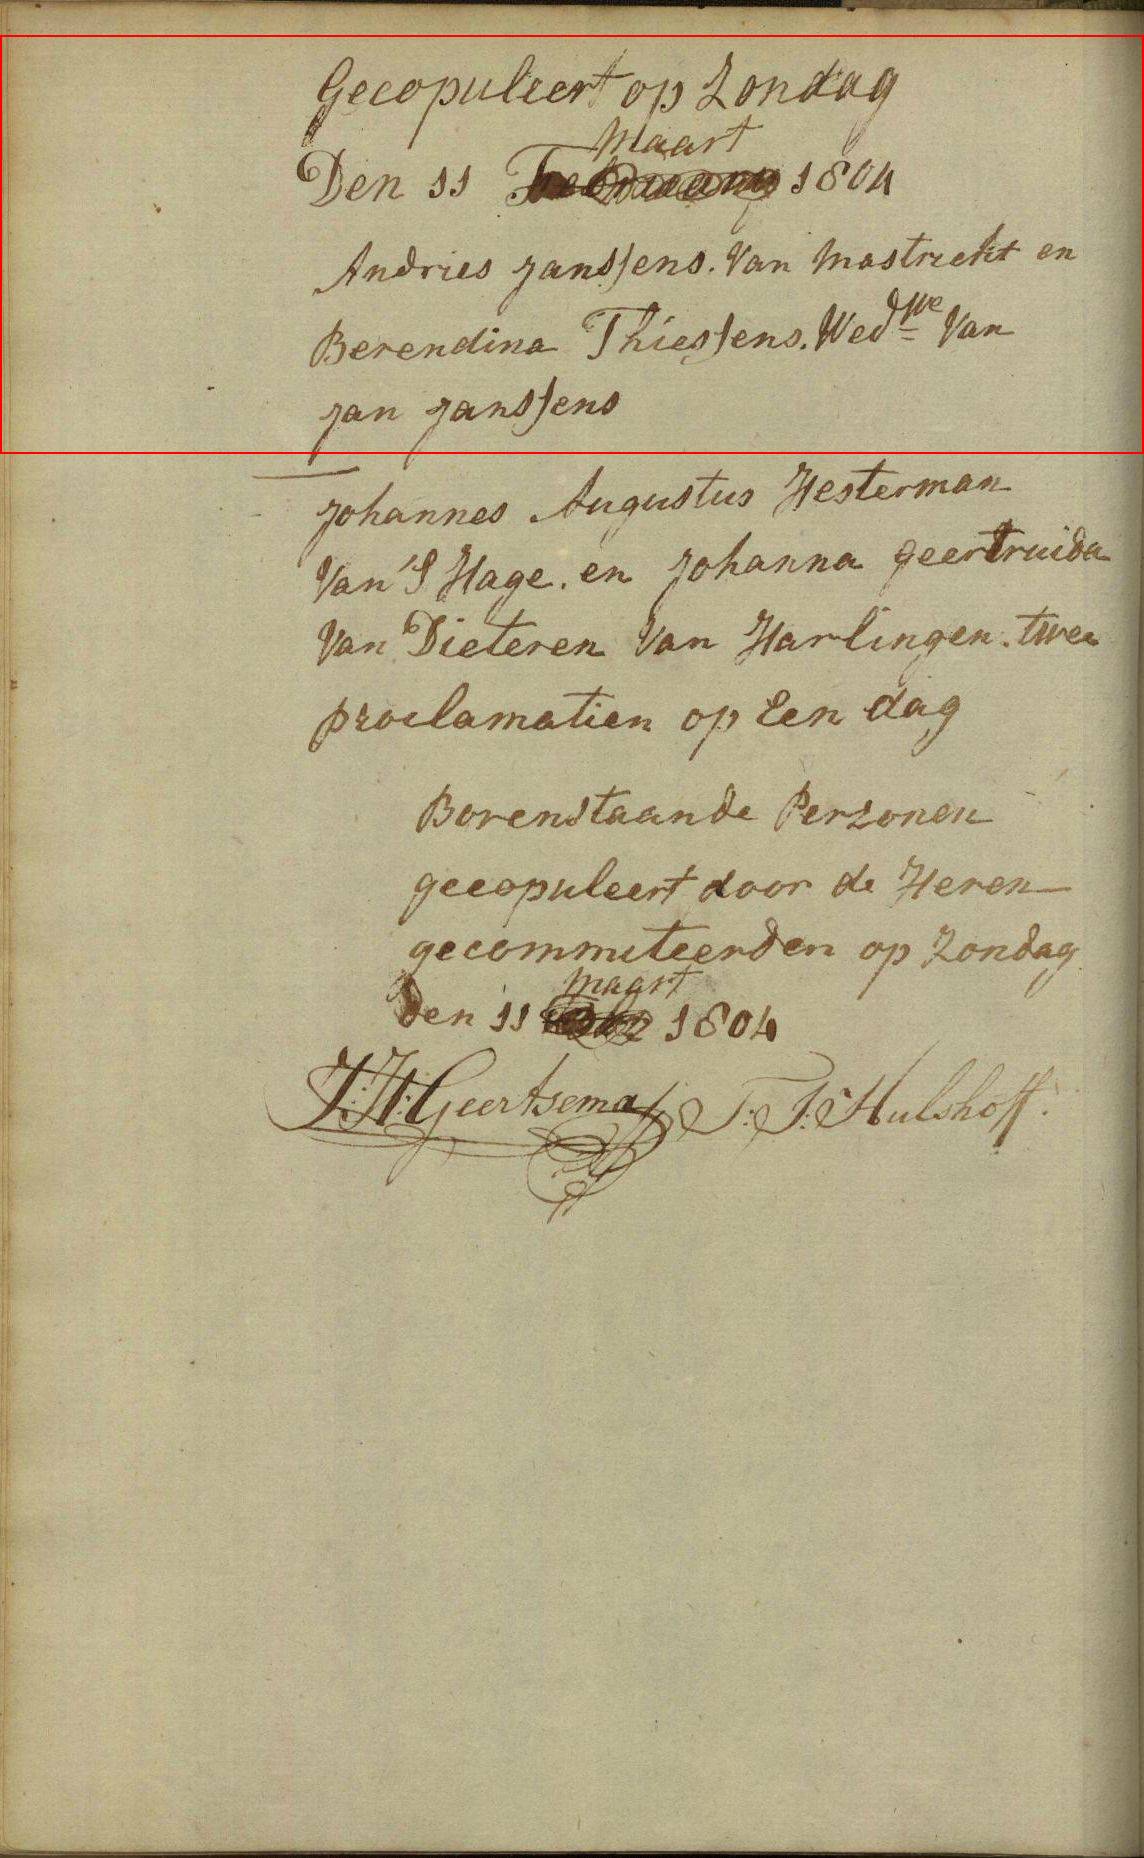 Gecopuleert op Zondag
Maart
Den 11 Februarij 1804
Andries Janssens. Van Mastricht en
Berendina Thiessens. Wedwe Van
Jan Janssens
Johannes Augustus Hesterman
Van 'S Hage. en Johanna geertruida
Van Dieteren Van Harlingen. twee
proclamatien op Een dag
Bovenstaande Perzonen
gecopuleert door de Heren
gecommiteerden op Zondag
Maart
den 11 1804
J: H: Geertsema J: J: Hulshoff.